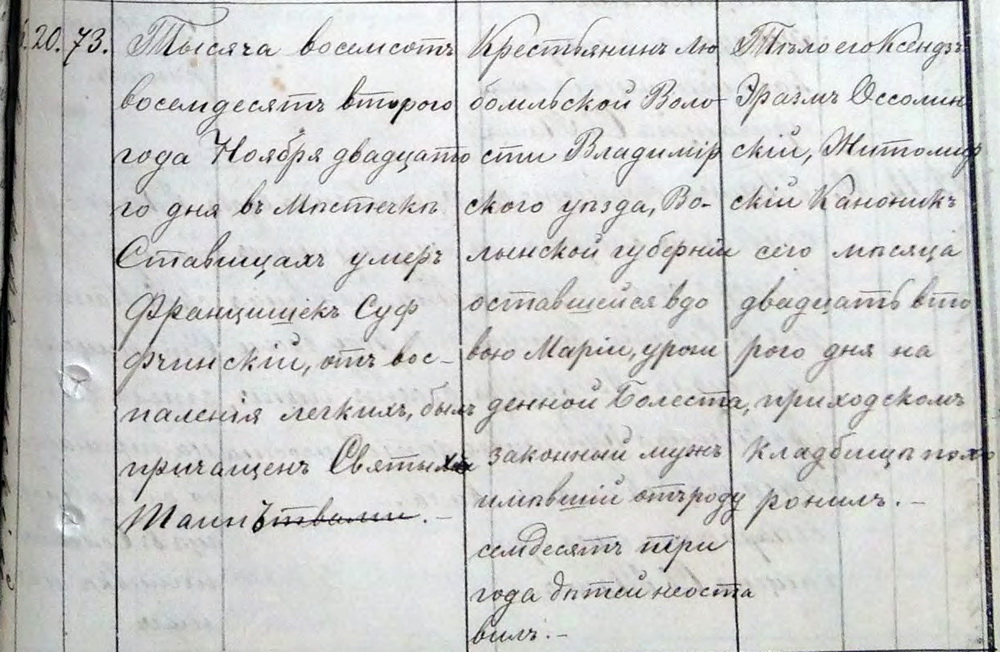 20. 73.
Тысяча восемсотъ
восемдесятъ второго
года Ноября двадцато
го дня въ Мѣстечкѣ
Ставищахъ умеръ
Францишекъ Суф
фчинскій, отъ вос-
паленія легкихъ, былъ
причащенъ Святыхъ
Таинъствами.-
Крестьянинъ Лю
бомльской Воло
сти Владимір
ского уѣзда, Во-
лынской губерніи
оставшейся вдо
вою Маріи, урож
денной Болеста,
законный мужъ
имѣвшій отъ роду
семдесятъ три
года дѣтей неоста
вилъ.-
Тѣло его Ксендзъ
Эразмъ Оссолин
скій, Житомир
скій Каноникъ
сего мѣсяца
двадцать вто
рого дня на
приходскомъ
кладбищѣ похо
ронилъ.-